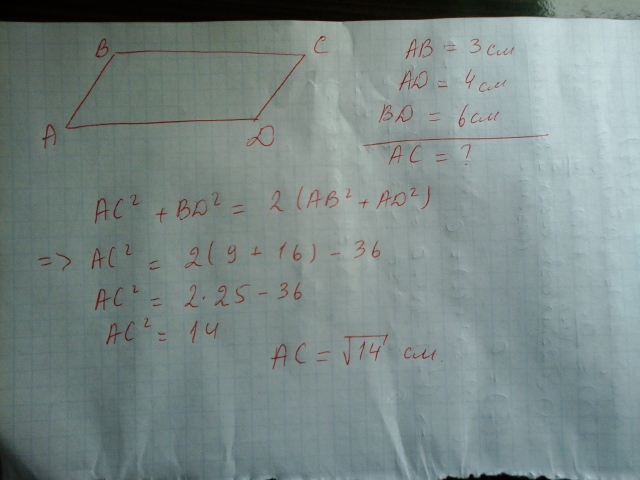 B C
A D
AB = 3 см
AD = 4 см
BD = 6 см
AC = ?
AC² + BD² = 2 (AB² + AD²)
=> AC² = 2(9 + 16) - 36
AC² = 2·25 - 36
AC² = 14
AC = √14 см.